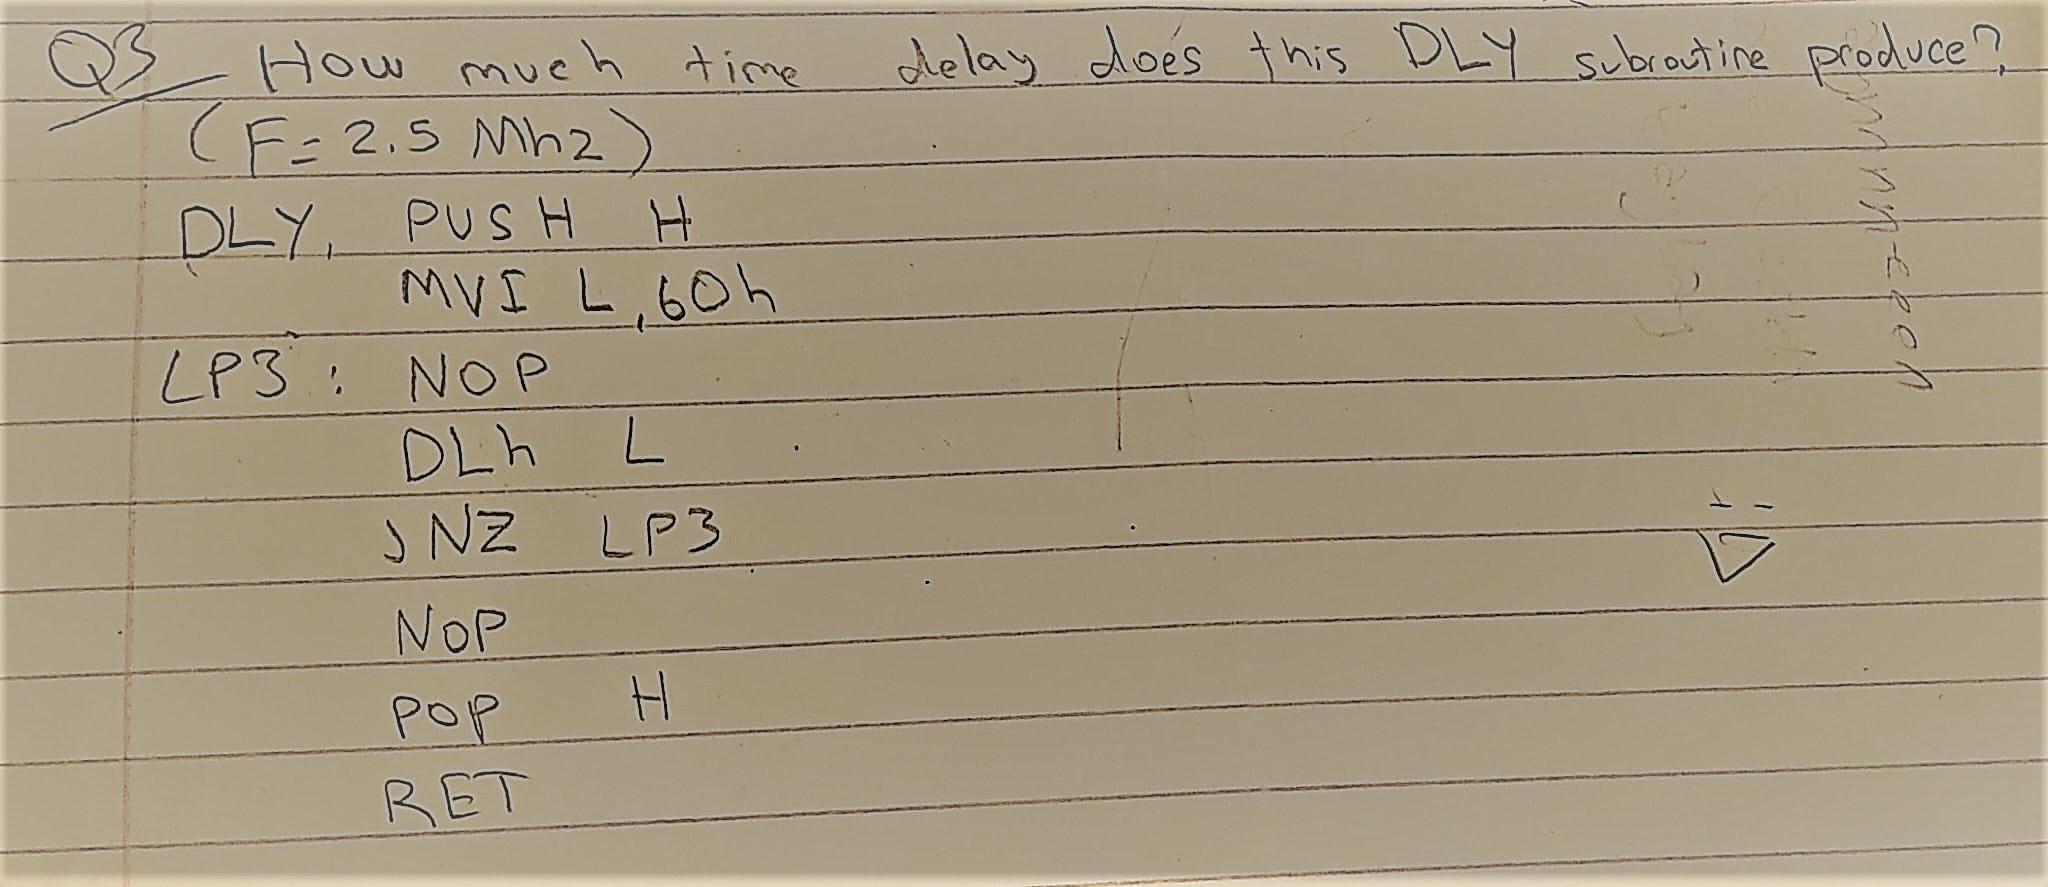 Q3 How much time delay does this DLY subroutine produce?
(F= 2.5 Mhz)
DLY, PUSH H
MVI L,60h
LP3: NOP
DLh L
JNZ LP3
NOP
POP H
RET